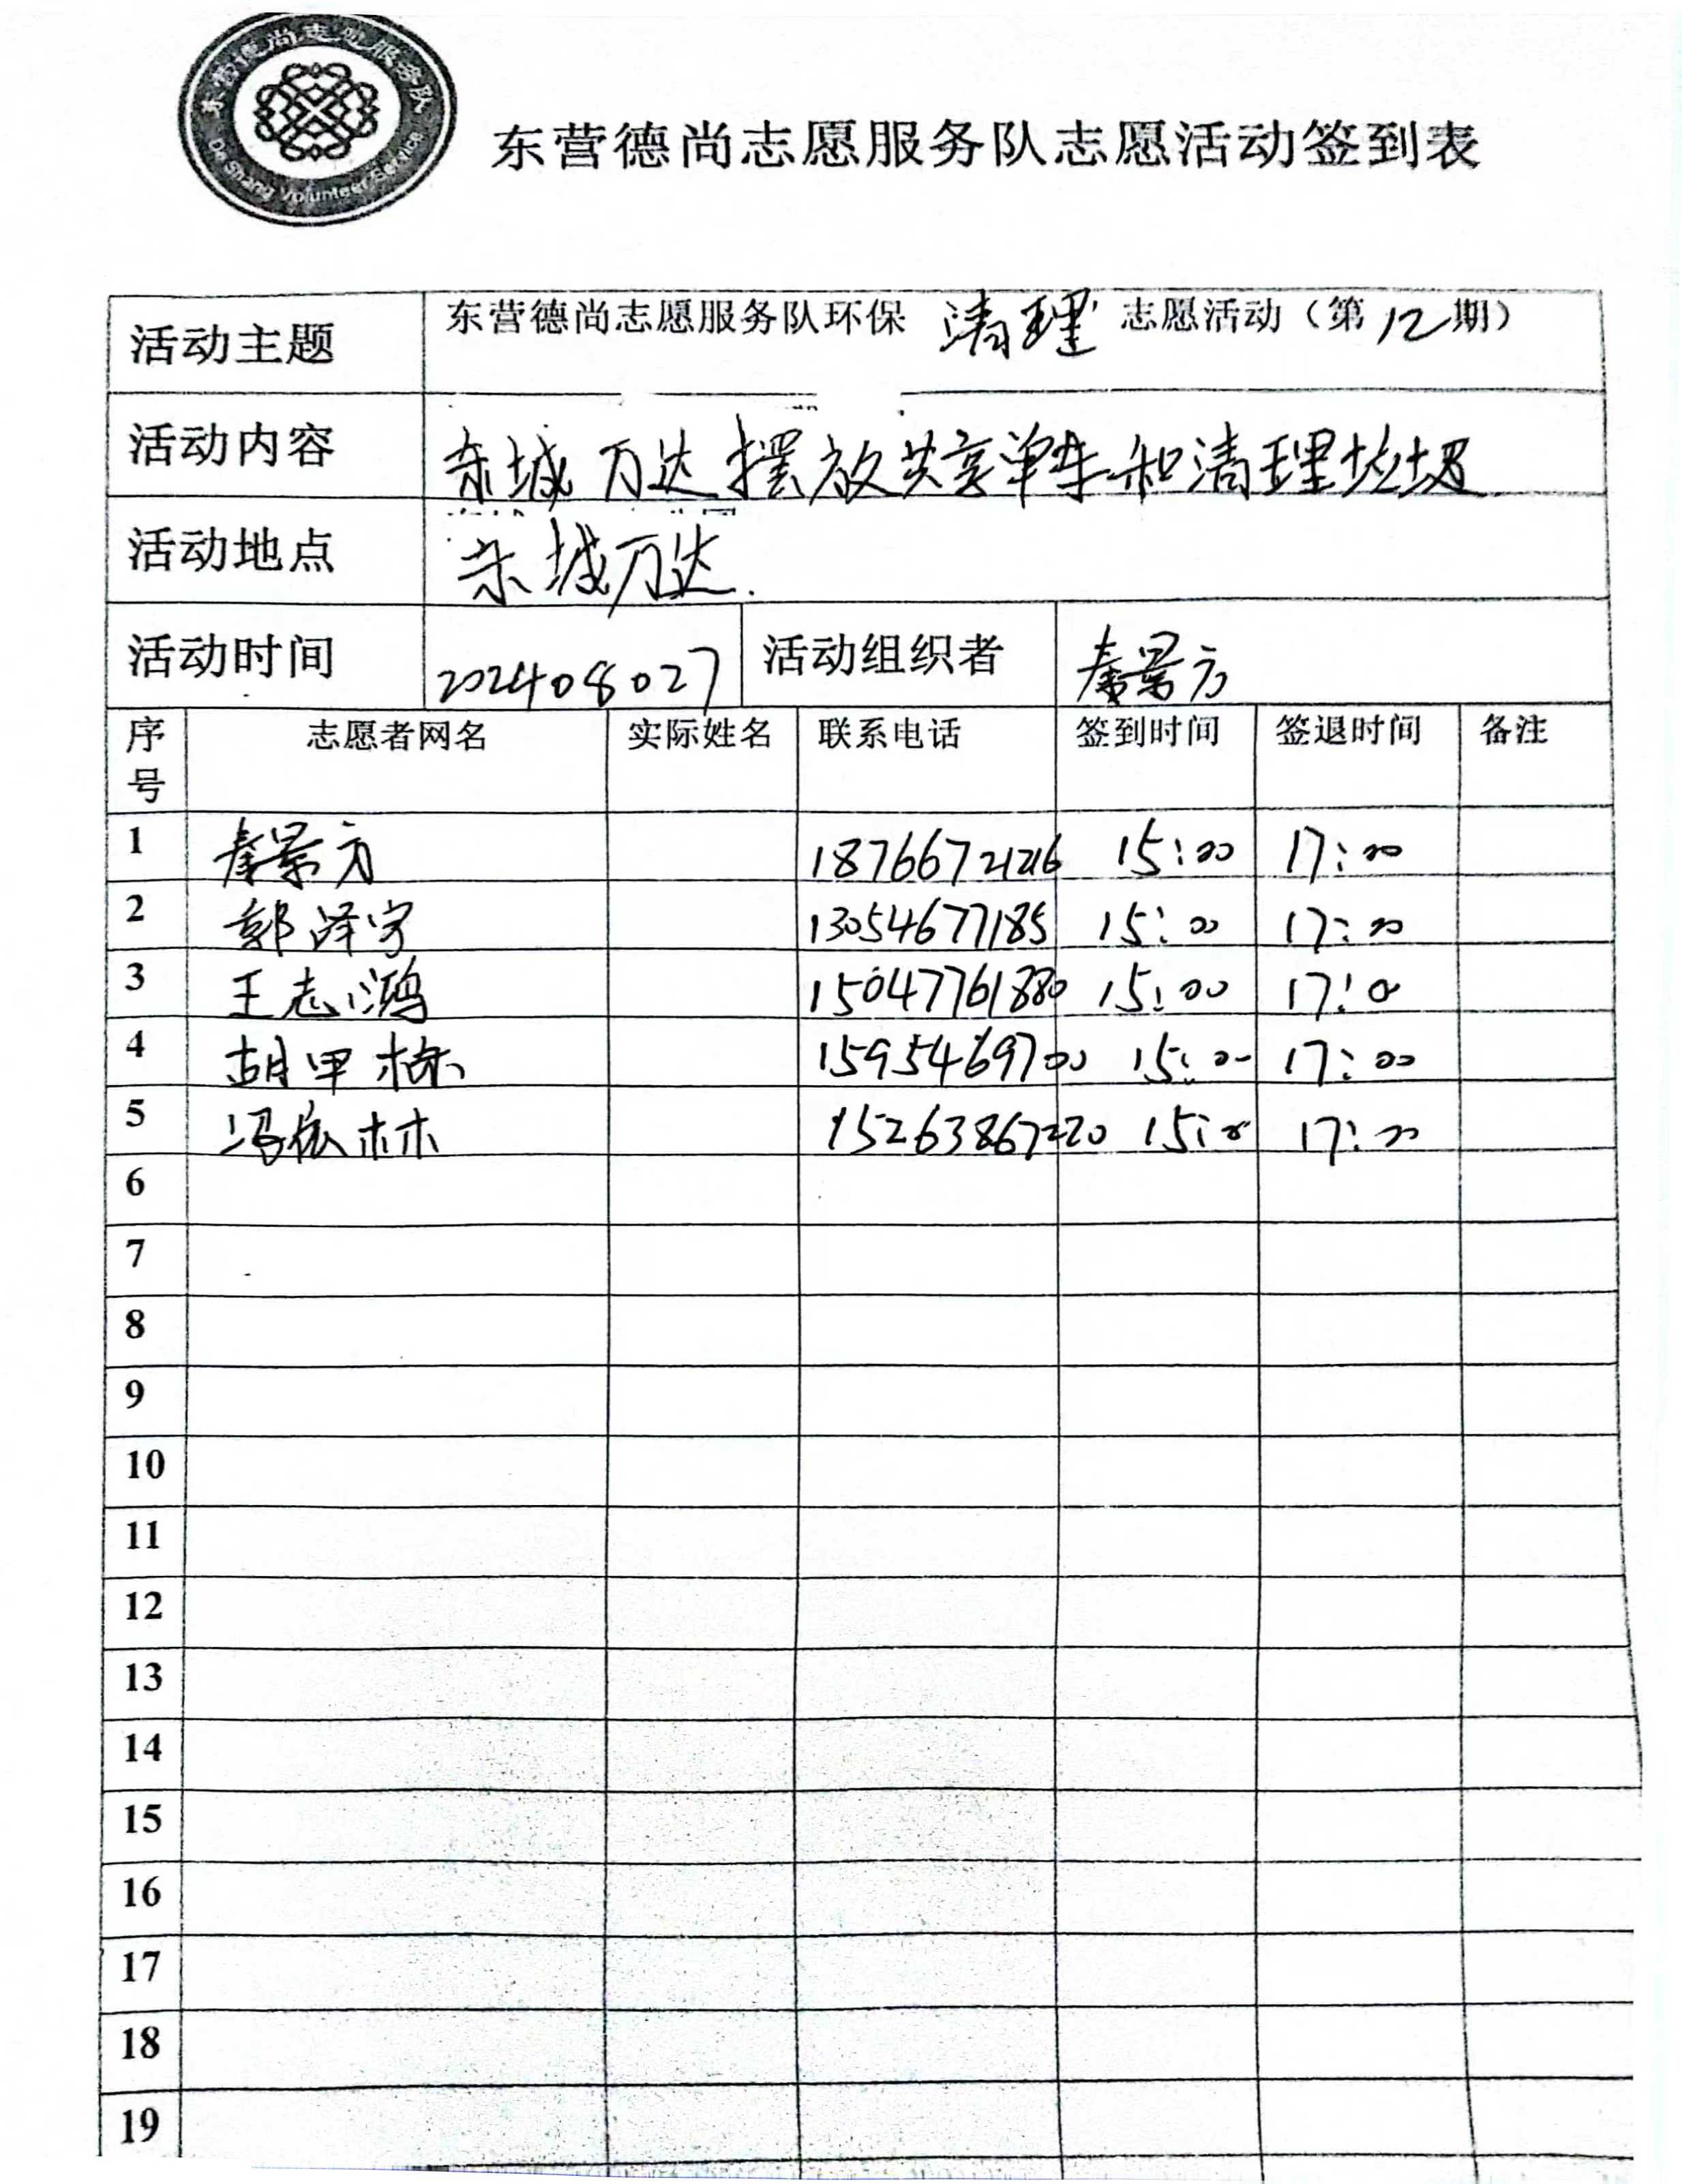 东营德尚志愿服务队
De Shang Volunteer Service
东营德尚志愿服务队志愿活动签到表
活动主题 东营德尚志愿服务队环保 清理 志愿活动（第12期）
活动内容 东城万达摆放共享单车和清理垃圾
活动地点 东城万达.
活动时间 202408027 活动组织者 秦景方
序号 志愿者网名 实际姓名 联系电话 签到时间 签退时间 备注
1 秦景方 18766721216 15:00 17:00
2 郭泽宇 13054677185 15:00 17:00
3 王志鸿 15047761880 15:00 17:0
4 胡甲栋 1595469700 15:00 17:00
5 冯依林 15263867220 15:00 17:00
6
7
8
9
10
11
12
13
14
15
16
17
18
19